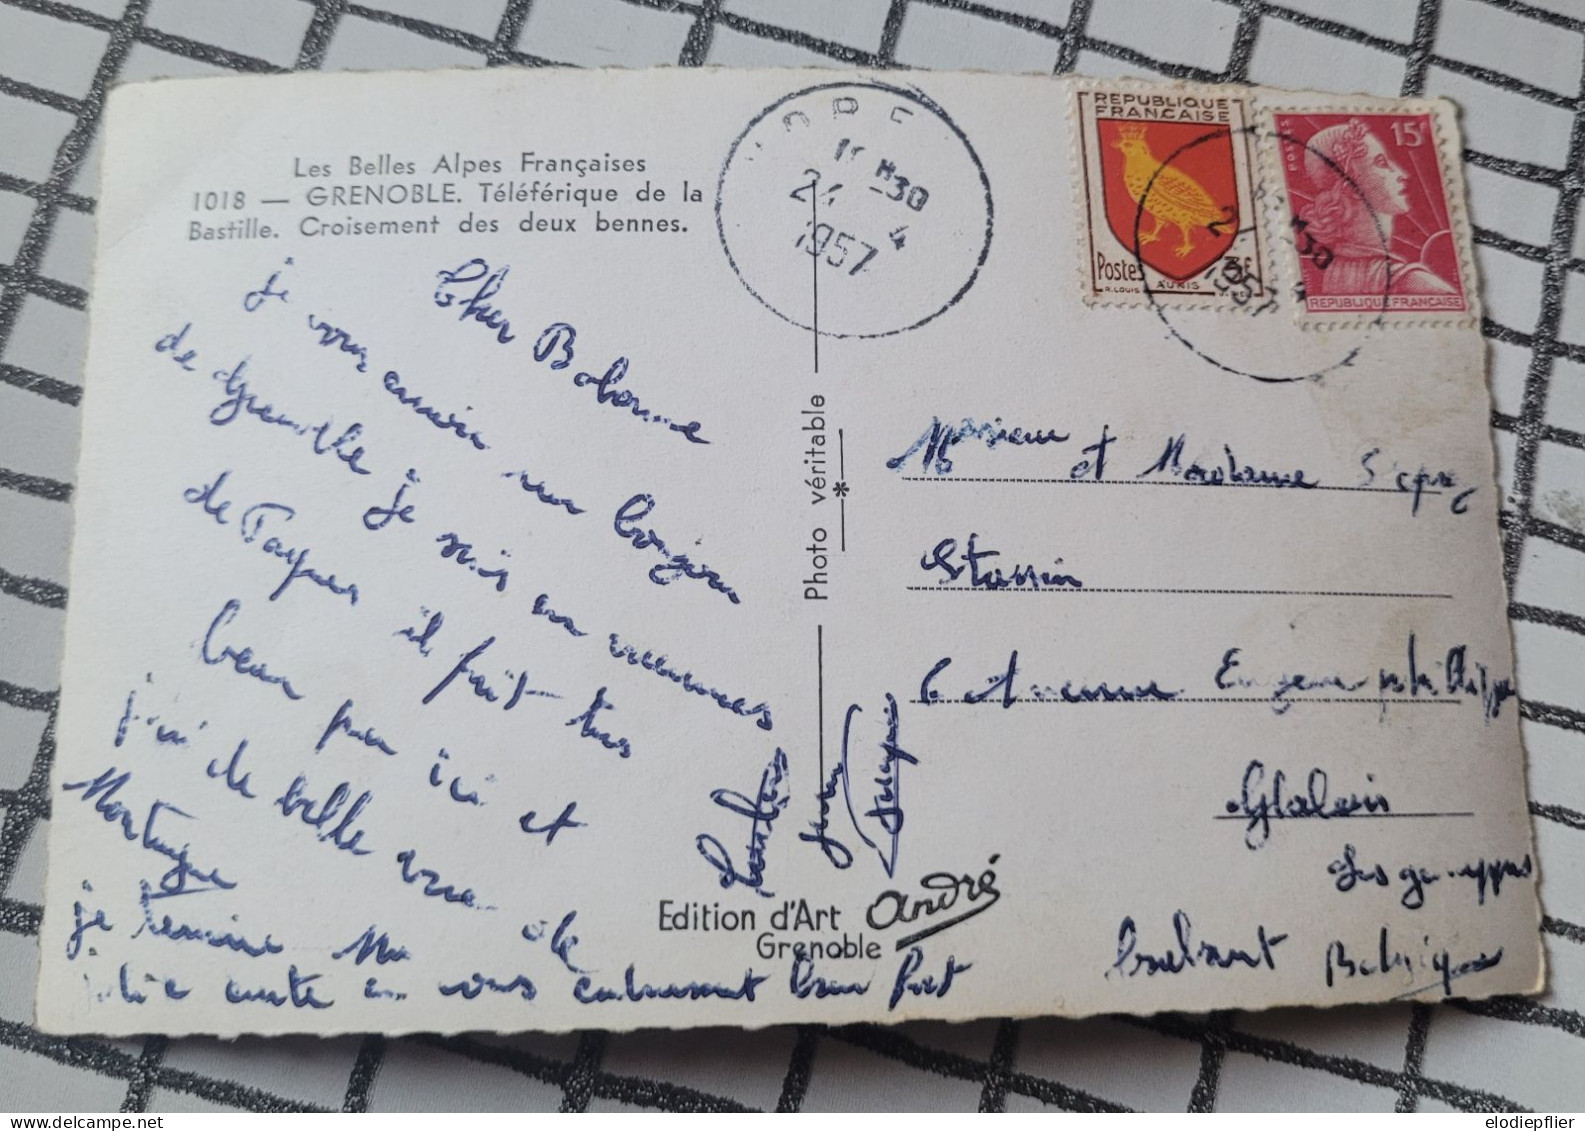 Les Belles Alpes Françaises
1018 — GRENOBLE. Téléférique de la
Bastille. Croisement des deux bennes.
24 4
1957
REPUBLIQUE
FRANCAISE
Postes 3F
R. LOUIS AUNIS
POSTES 15F
REPUBLIQUE FRANCAISE
1957
Cher Bobonne
je vous envoie un bonjour
de Grenoble je suis en vacances
de Paques il fait tres
beau par ici et
j'ai de belle vue de
Montagne
je termine Ma
jolie carte en vous embrassant bien fort
Photo véritable
*
Edition d'Art André
Grenoble
Monsieur et Madame
Stassin
6 Avenue Eugene philippe
Glabais
Les genappes
brabant Belgique
elodiepflier